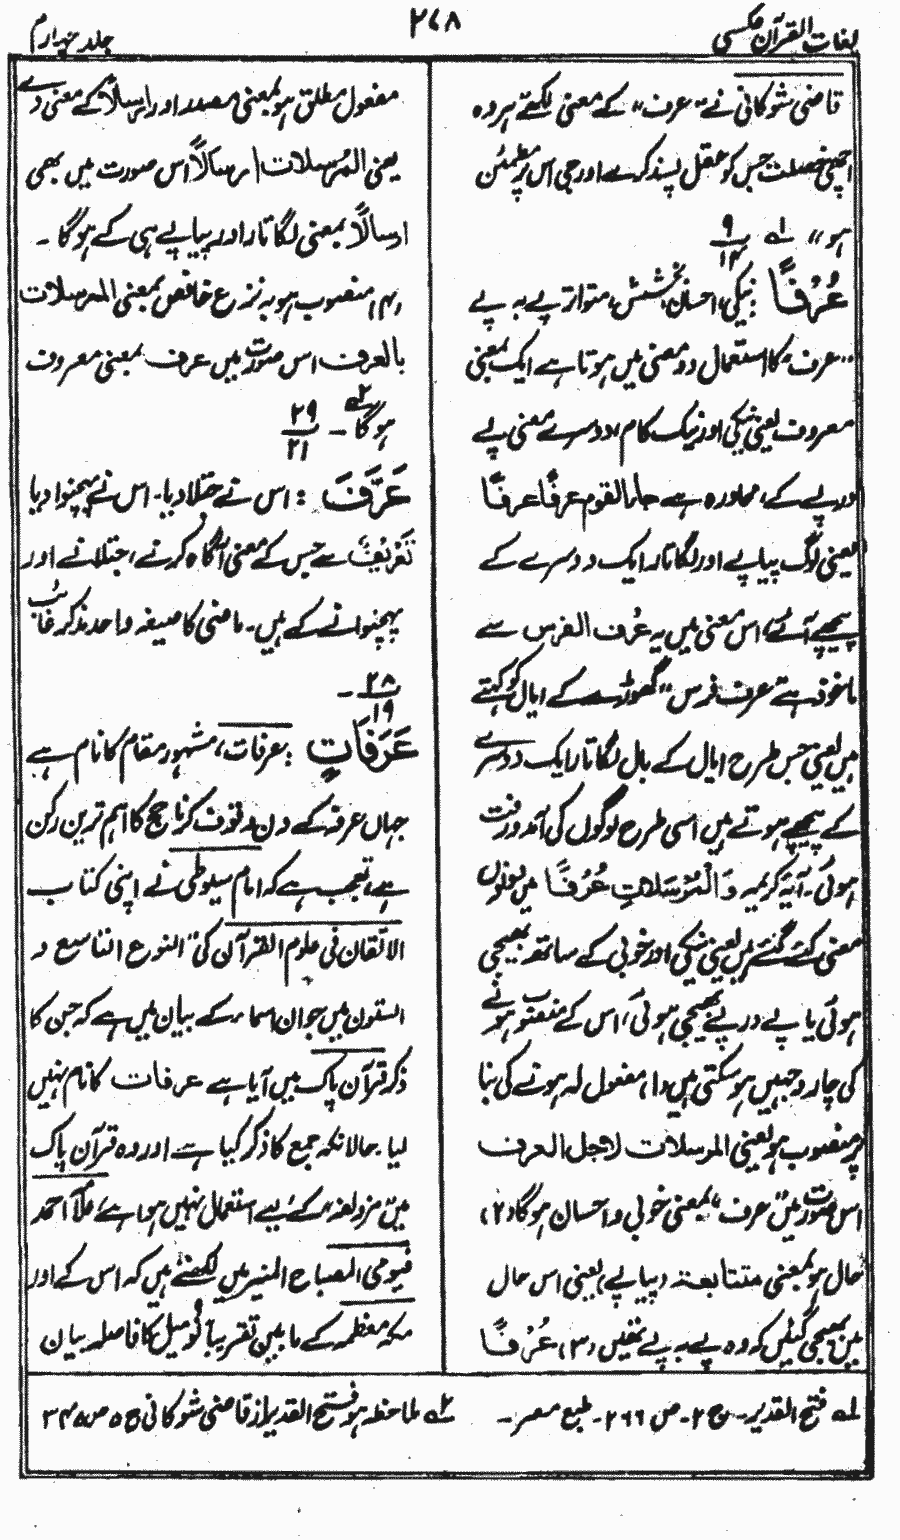 لغات القرآن عکسی
۲۶۸
جلد چہارم
قاضی شوکانی نے “عرف” کے معنی لکھے ہر وہ
اچھی خصلت جس کو عقل پسند کرے اور جی اس پر مطمئن
ہو” لہ ۹/۱۴
عُرْفًا : نیکی، احسان، بخشش، متواتر پے بہ پے
“عرف” کا استعمال دو معنی میں ہوتا ہے ایک بمعنی
معروف یعنی نیکی اور نیک کام، دوسرے معنی پے
در پے کے، محاورہ ہے جاء القوم عرفًا عرفًا
یعنی لوگ پیاپے اور لگاتار ایک دوسرے کے
پیچھے آئے، اس معنی میں یہ عُرف الفرس سے
ماخوذ ہے عرف فرس “گھوڑے کے ایال کو کہتے
ہیں یعنی جس طرح ایال کے بال لگاتار ایک دوسرے
کے پیچھے ہوتے ہیں اسی طرح لوگوں کی آمدورفت
ہوئی۔ آیہ کریمہ وَالْمُرْسَلَاتِ عُرْفًا میں دونوں
معنی کئے گئے ہیں یعنی نیکی اور خوبی کے ساتھ بھیجی
ہوئی یا پے در پے بھیجی ہوئی، اس کے منصوب ہونے
کی چار وجہیں ہوسکتی ہیں، (۱) مفعول لہ ہونے کی بنا
پر منصوب ہو یعنی المرسلات لاجل العرف
اس صورت میں “عرف” بمعنی خوبی و احسان ہوگا، (۲)
حال ہو بمعنی متتابعۃ (پیاپے) یعنی اس حال
میں بھیجی گئیں کہ وہ پے بہ پے تھیں (۳) عُرْفًا
مفعول مطلق ہو بمعنی مصدر اور ارسالاً کے معنی دے
یعنی المُرسلات ارسالاً اس صورت میں بھی
ارسالاً بمعنی لگاتار اور پیاپے ہی کے ہوگا۔
(۴) منصوب ہو بہ نزع خافض بمعنی المرسلات
بالعرف اس صورت میں عرف بمعنی معروف
ہوگا ۲ے۔ ۲۹/۲۱
عَرَّفَ : اس نے جتلا دیا۔ اس نے پہچنوا دیا
تَعْرِیْفٌ سے جس کے معنی آگاہ کرنے، جتلانے اور
پہچنوانے کے ہیں۔ ماضی کا صیغہ واحد مذکر غائب
۲۸/۱۹۔
عَرَفَاتٍ : عرفات، مشہور مقام کا نام ہے
جہاں عرفہ کے دن وقوف کرنا حج کا اہم ترین رکن
ہے، تعجب ہے کہ امام سیوطی نے اپنی کتاب
الاتقان فی علوم القرآن کی “النوع التاسع و
الستون میں جو ان اسماء کے بیان میں ہے کہ جن کا
ذکر قرآن پاک میں آیا ہے عرفات کا نام نہیں
لیا۔ حالانکہ جمع کا ذکر کیا ہے اور وہ قرآن پاک
میں مزدلفہ کے لیے استعمال نہیں ہوا ہے، ملّا احمد
فیومی المصباح المنیر میں لکھتے ہیں کہ اس کے اور
مکہ معظمہ کے مابین تقریباً نو میل کا فاصلہ بیان
لہ فتح القدیر۔ ج ۲۔ ص ۲۶۶۔ طبع مصر۔ ۲ے ملاحظہ ہو فتح القدیر از قاضی شوکانی ج ۵ ص ۳۴۵